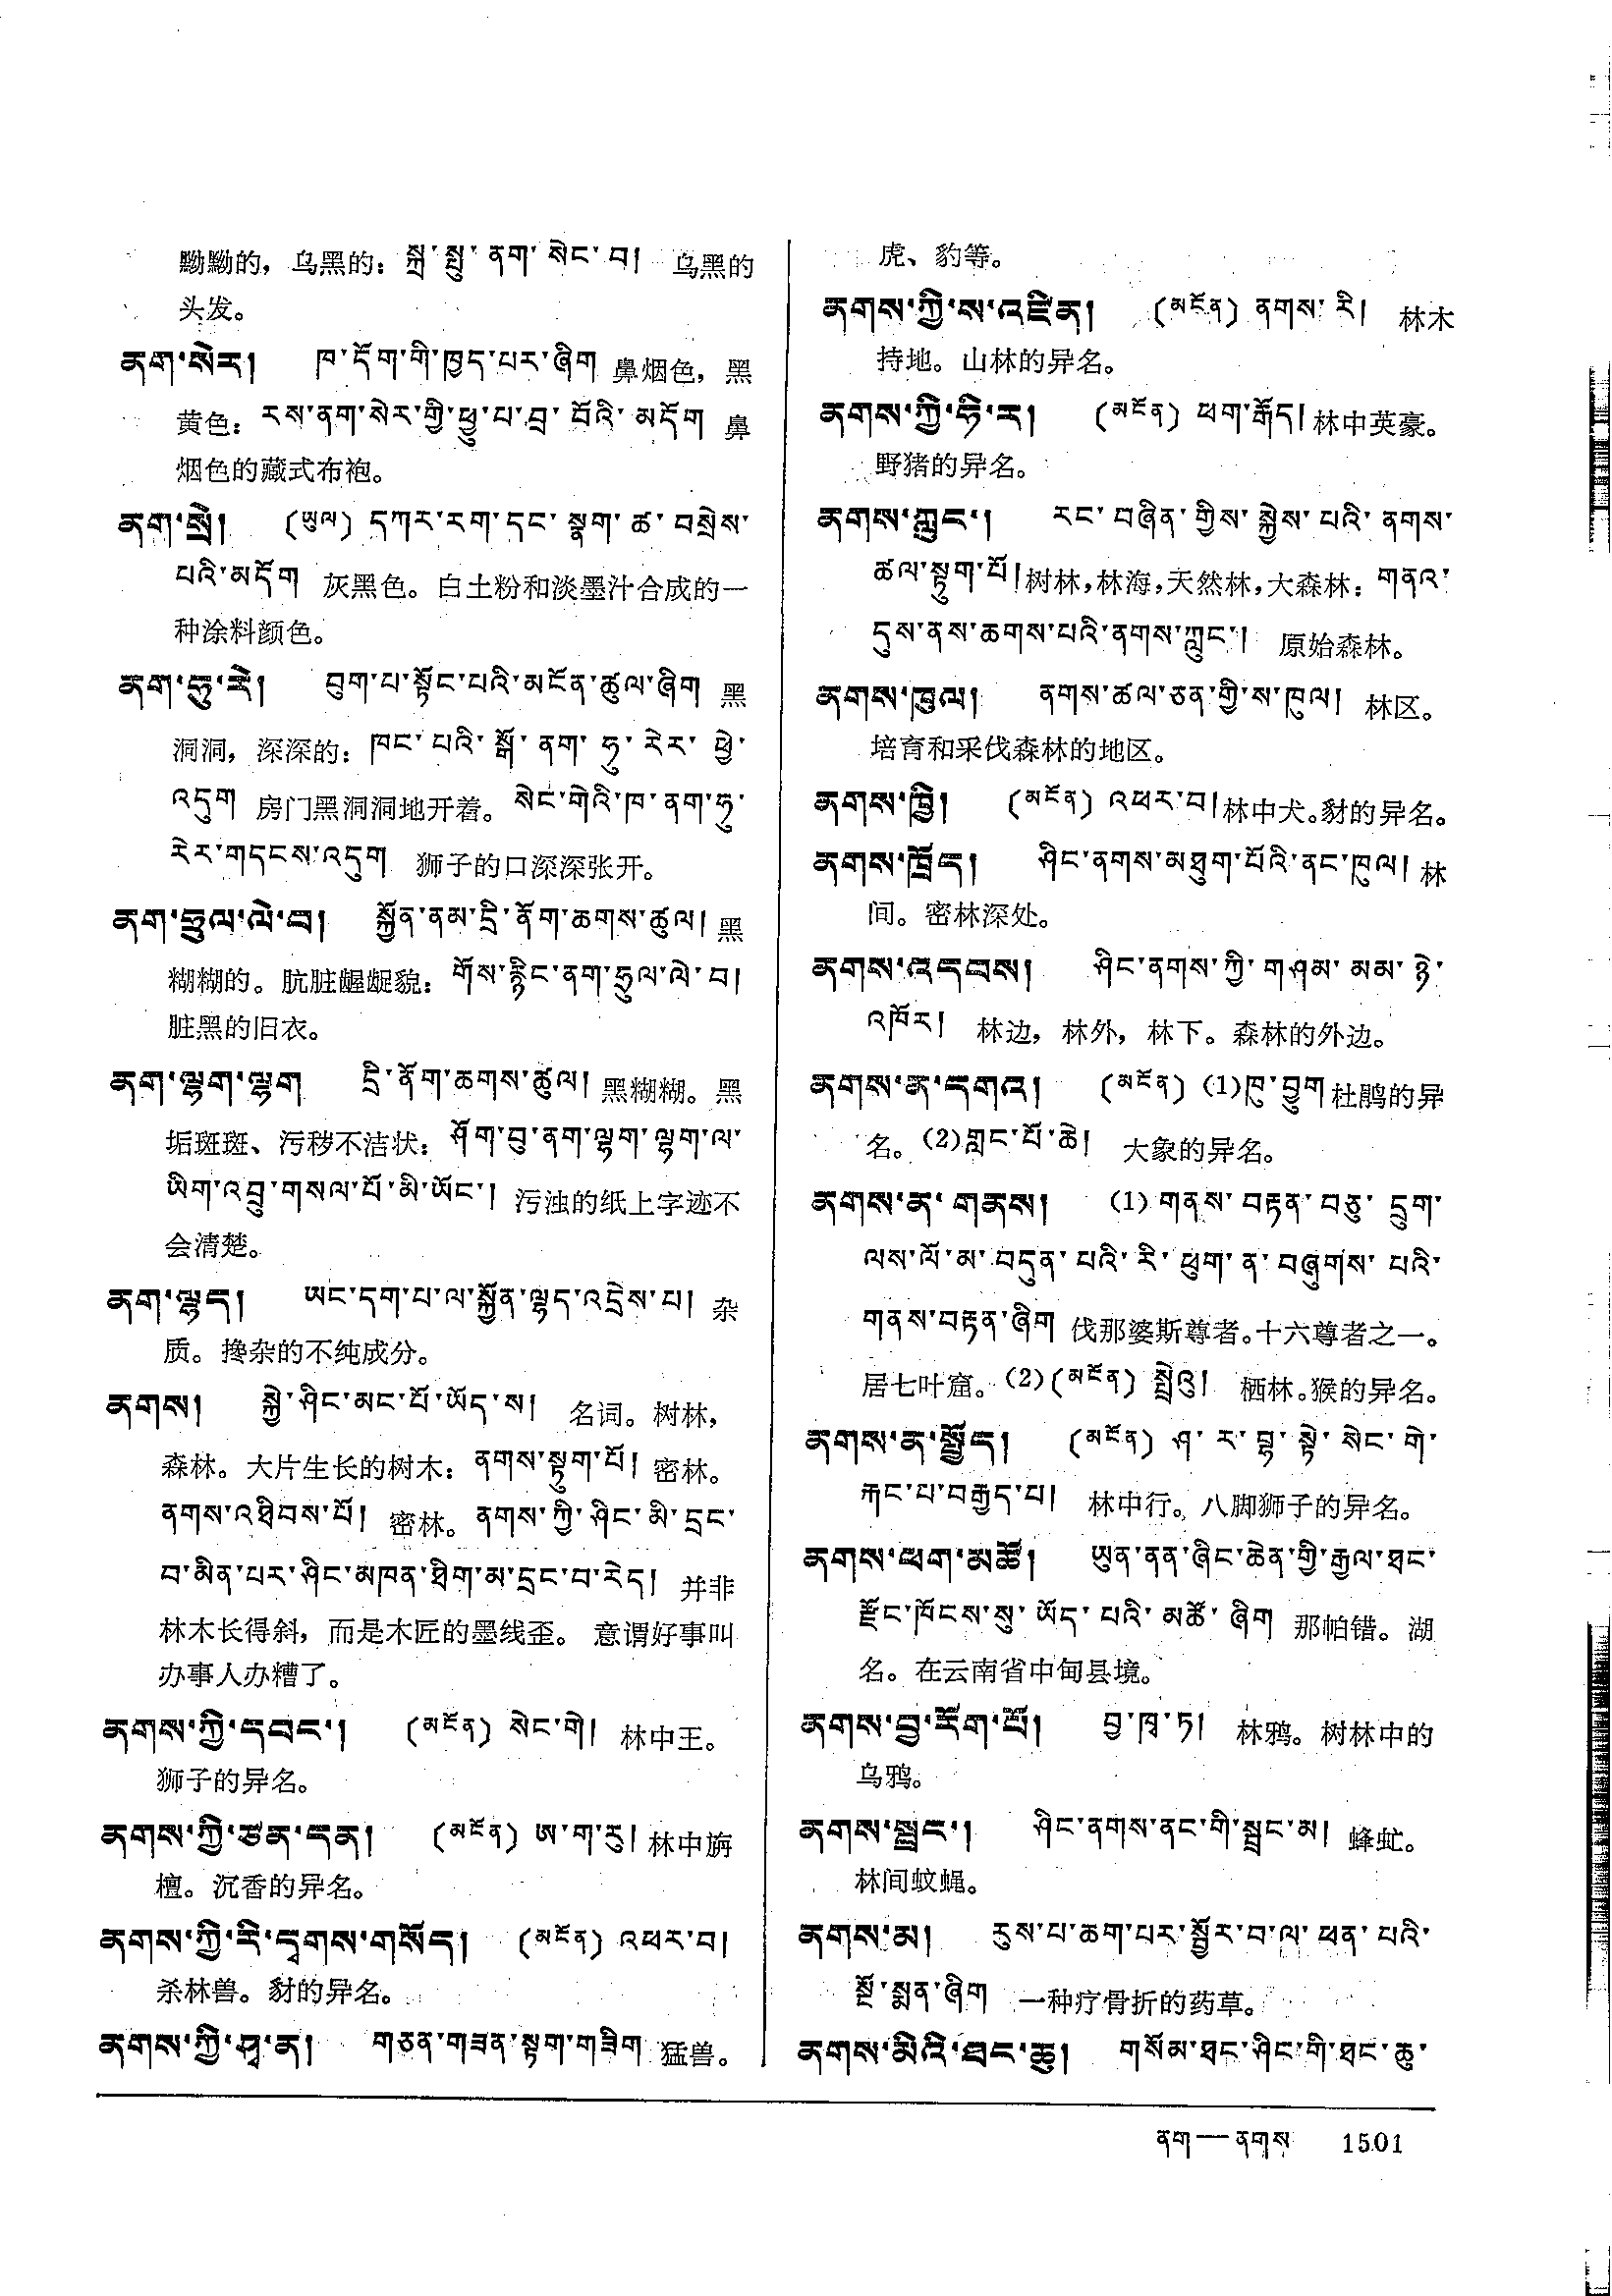 黝黝的，乌黑的：སྐྲ་སྤུ་ནག་སེང་བ། 乌黑的
头发。
ནག་སེར། ཁ་དོག་གི་ཁྱད་པར་ཞིག 鼻烟色，黑
黄色：རས་ནག་སེར་གྱི་ཕྱུ་པ་བྲ་བོའི་མདོག 鼻
烟色的藏式布袍。
ནག་སྲེ། (ཡུལ) དཀར་རག་དང་སྣག་ཚ་བསྲེས་
པའི་མདོག 灰黑色。白土粉和淡墨汁合成的一
种涂料颜色。
ནག་ཧུ་རེ། བུག་པ་སྟོང་པའི་མངོན་ཚུལ་ཞིག 黑
洞洞，深深的：ཁང་པའི་སྒོ་ནག་ཧུ་རེར་ཕྱེ་
འདུག 房门黑洞洞地开着。སེང་གེའི་ཁ་ནག་ཧུ་
རེར་གདངས་འདུག 狮子的口深深张开。
ནག་ཧྲུལ་ལེ་བ། སྐྱོན་ནམ་དྲི་ནོག་ཆགས་ཚུལ། 黑
糊糊的。肮脏龌龊貌：གོས་རྙིང་ནག་ཧྲུལ་ལེ་བ།
脏黑的旧衣。
ནག་ལྷག་ལྷག དྲི་ནོག་ཆགས་ཚུལ། 黑糊糊。黑
垢斑斑、污秽不洁状：ཤོག་བུ་ནག་ལྷག་ལྷག་ལ་
ཡིག་འབྲུ་གསལ་པོ་མི་ཡོང་། 污浊的纸上字迹不
会清楚。
ནག་ལྷད། ཡང་དག་པ་ལ་སྐྱོན་ལྷད་འདྲེས་པ། 杂
质。搀杂的不纯成分。
ནགས། སྐྱེ་ཤིང་མང་པོ་ཡོད་ས། 名词。树林，
森林。大片生长的树木：ནགས་སྟུག་པོ། 密林。
ནགས་འཐིབས་པོ། 密林。ནགས་ཀྱི་ཤིང་མི་དྲང་
བ་མིན་པར་ཤིང་མཁན་ཐིག་མ་དྲང་བ་རེད། 并非
林木长得斜，而是木匠的墨线歪。意谓好事叫
办事人办糟了。
ནགས་ཀྱི་དབང་། (མངོན) སེང་གེ། 林中王。
狮子的异名。
ནགས་ཀྱི་ཙན་དན། (མངོན) ཨ་ག་རུ། 林中旃
檀。沉香的异名。
ནགས་ཀྱི་རི་དྭགས་གསོད། (མངོན) འཕར་བ།
杀林兽。豺的异名。
ནགས་ཀྱི་ཤྭ་ན། གཅན་གཟན་སྟག་གཟིག 猛兽。
虎、豹等。
ནགས་ཀྱི་ས་འཛིན། (མངོན) ནགས་རི། 林木
持地。山林的异名。
ནགས་ཀྱི་ཧི་ར། (མངོན) ཕག་རྒོད། 林中英豪。
野猪的异名。
ནགས་ཀླུང་། རང་བཞིན་གྱིས་སྐྱེས་པའི་ནགས་
ཚལ་སྟུག་པོ། 树林，林海，天然林，大森林：གནའ་
དུས་ནས་ཆགས་པའི་ནགས་ཀླུང་། 原始森林。
ནགས་ཁུལ། ནགས་ཚལ་ཅན་གྱི་ས་ཁུལ། 林区。
培育和采伐森林的地区。
ནགས་ཁྱི། (མངོན) འཕར་བ། 林中犬。豺的异名。
ནགས་ཁྲོད། ཤིང་ནགས་མཐུག་པོའི་ནང་ཁུལ། 林
间。密林深处。
ནགས་འདབས། ཤིང་ནགས་ཀྱི་གཤམ་མམ་ཉེ་
འཁོར། 林边，林外，林下。森林的外边。
ནགས་ན་དགའ། (མངོན) (1)ཁུ་བྱུག 杜鹃的异
名。(2)གླང་པོ་ཆེ། 大象的异名。
ནགས་ན་གནས། (1) གནས་བརྟན་བཅུ་དྲུག་
ལས་ལོ་མ་བདུན་པའི་རི་ཕུག་ན་བཞུགས་པའི་
གནས་བརྟན་ཞིག 伐那婆斯尊者。十六尊者之一。
居七叶窟。(2)(མངོན) སྤྲེའུ། 栖林。猴的异名。
ནགས་ན་སྤྱོད། (མངོན) ཤ་ར་བྷ་སྟེ་སེང་གེ་
རྐང་པ་བརྒྱད་པ། 林中行。八脚狮子的异名。
ནགས་ཕག་མཚོ། ཡུན་ནན་ཞིང་ཆེན་གྱི་རྒྱལ་ཐང་
རྫོང་ཁོངས་སུ་ཡོད་པའི་མཚོ་ཞིག 那帕错。湖
名。在云南省中甸县境。
ནགས་བྱ་རོག་པོ། བྱ་ཁྭ་ཏ། 林鸦。树林中的
乌鸦。
ནགས་སྦྲང་། ཤིང་ནགས་ནང་གི་སྦྲང་མ། 蜂虻。
林间蚊蝇。
ནགས་མ། རུས་པ་ཆག་པར་སྦྱོར་བ་ལ་ཕན་པའི་
སྔོ་སྨན་ཞིག 一种疗骨折的药草。
ནགས་མིའི་ཐང་ཆུ། གསོམ་ཐང་ཤིང་གི་ཐང་ཆུ་
ནག—ནགས 1501